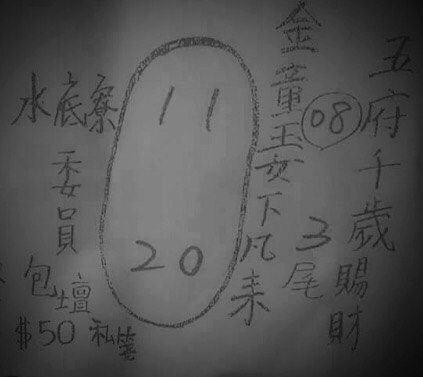 五府千歲賜財
08
3尾
金童玉女下凡来
11
20
水底寮
委員
包壇
$50